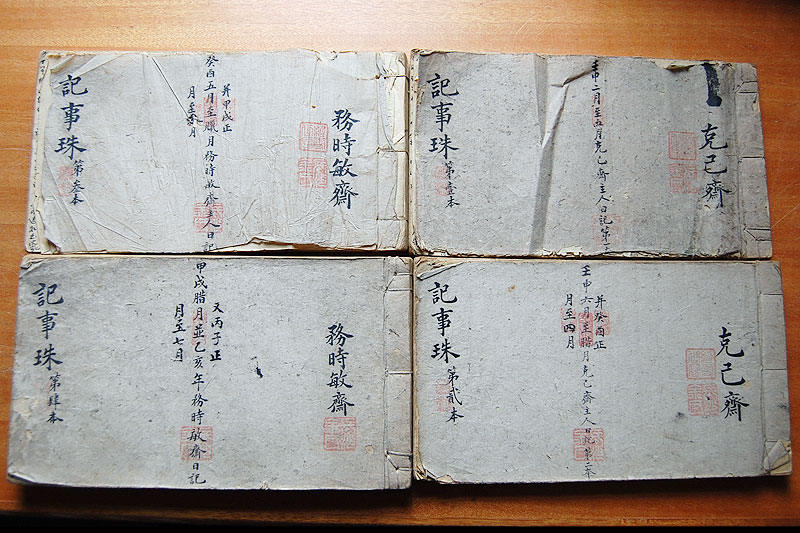 克己齋
壬申二月至五月克己齋主人日記第
記事珠 第壹本
克己齋
并癸酉正
月至四月
壬申六月至腊月克己齋主人日記第二本
記事珠 第貳本
務時敏齋
并甲戌正
癸酉五月至臘月務時敏齋主人日記
月至 月
記事珠 第叄本
務時敏齋
又丙子正
甲戌腊月並乙亥年務時敏齋日記
月至七月
記事珠 第肆本